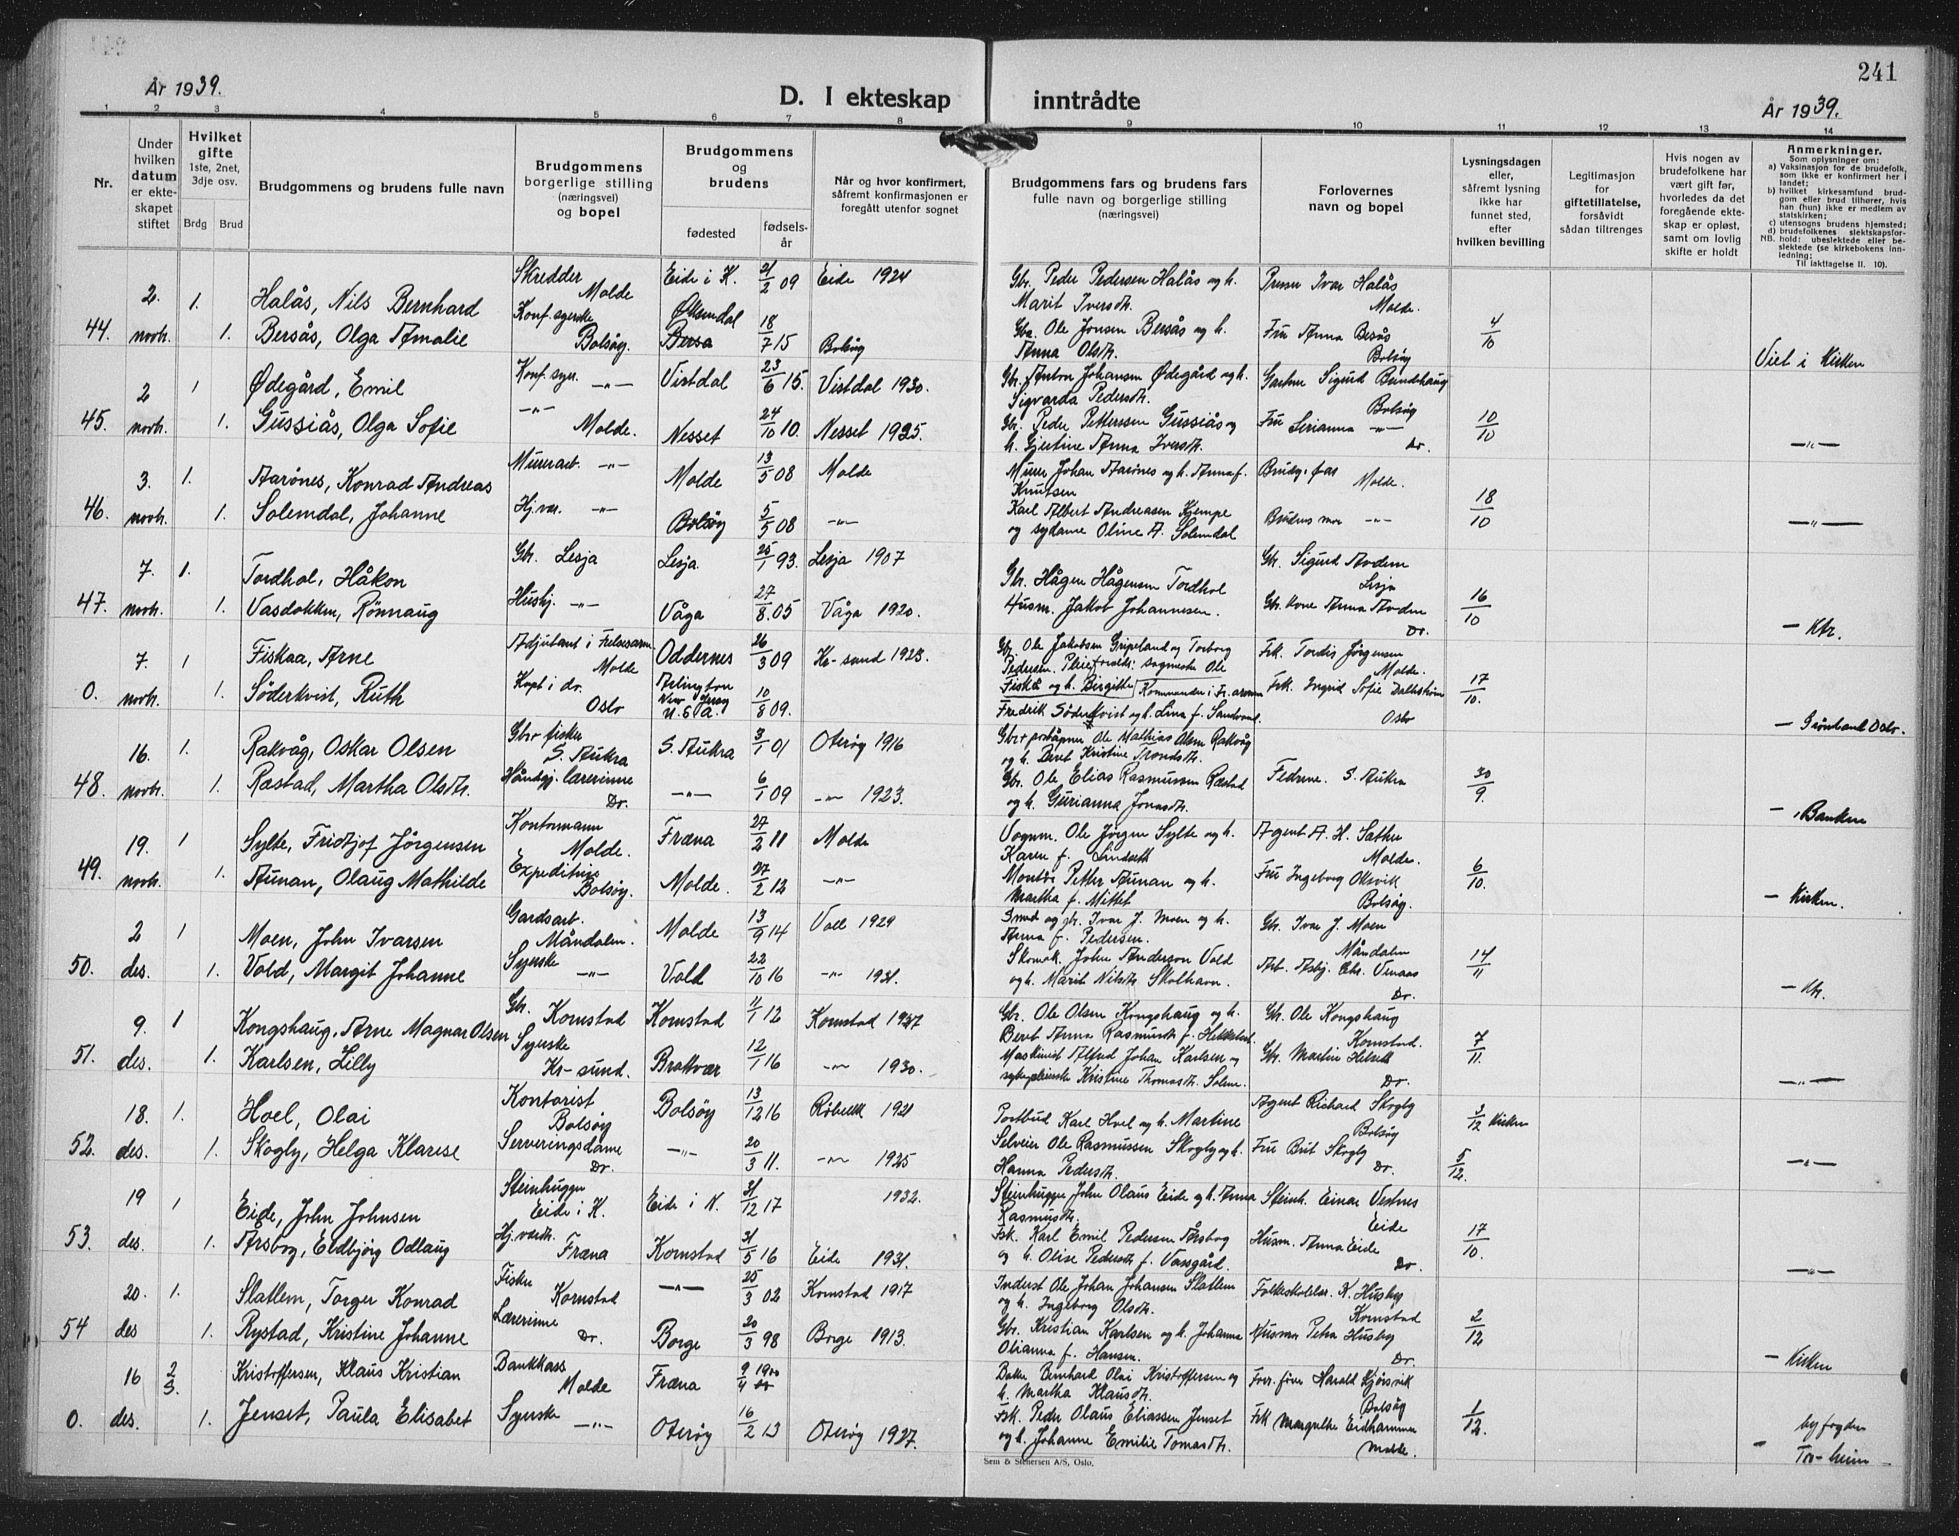 241
År 1939.
D. I ekteskap inntrådte
År 1939.
1 2 3 4 5 6 7 8 9 10 11 12 13 14
Nr.
Under hvilken datum er ekteskapet stiftet
Hvilket gifte 1ste, 2net, 3dje osv.
Brdg Brud
Brudgommens og brudens fulle navn
Brudgommens borgerlige stilling (næringsvei) og bopel
Brudgommens og brudens
fødested
fødselsår
Når og hvor konfirmert, såfremt konfirmasjonen er foregått utenfor sognet
Brudgommens fars og brudens fars fulle navn og borgerlige stilling (næringsvei)
Forlovernes navn og bopel
Lysningsdagen eller, såfremt lysning ikke har funnet sted, efter hvilken bevilling
Legitimasjon for giftetillatelse, forsåvidt sådan tiltrenges
Hvis nogen av brudefolkene har vært gift før, hvorledes da det foregående ekteskap er opløst, samt om lovlig skifte er holdt
Anmerkninger.
Som oplysninger om:
a) Vaksinasjon for de brudefolk, som ikke er konfirmert her i landet;
b) hvilket kirkesamfund brudgom eller brud tilhører, hvis han (hun) ikke er medlem av statskirken;
c) utensogns brudens hjemsted;
d) brudefolkenes slektskapsforhold: ubeslektede eller beslektede (se kirkebokens innledning;
NB. Til iakttagelse II. 10).
44. 2. novb. 1. Halås, Nils Bernhard Skredder Molde Eide i K. 21/2 09 Eide 1924 Gbr. Peder Pedersen Halås og h. Marit Iversdt. Ivar Halås Molde.
1. Bersås, Olga Amalie Konf. syerske Bolsøy. Øksendal 18/7 15 Bolsøy Gbr. Ole Jonsen Bersås og h. Anna Olsdt. Fru Anna Bersås Bolsøy 4/10 Viet i Kirken
45. 2 novb. 1 Ødegård, Emil Konf. syer. -"- Vistdal 23/6 15. Vistdal 1930. Gbr. Anton Johansen Ødegård og h. Sigvarda Pedersdt. Sigurd Bolsøy
1. Gussiås, Olga Sofie -"- Molde. Nesset 24/10 10. Nesset 1925. Gbr. Peder Pettersen Gussiås og h. Gjertine Anna Iversdt. Fru Serianna -"- Do. 10/10 -"-
46. 3. novb. 1. Aarønes, Konrad Andreas Murerarb. -"- Molde 13/5 08 Molde Murer Johan Aarønes og h. Anna f. Knutsen Brudg. far Molde.
1. Solemdal, Johanne Hj.vær. -"- Bolsøy 5/5 08 -"- Karl Albert Andreasen Kjempe og sydame Oline A. Solemdal Brudens mor -"- 18/10 -"-
47. 7. novb. 1. Tordhol, Håkon Gbr. Lesja Lesja 25/1 93. Lesja 1907 Gbr. Hågen Hågensen Tordhol Gbr. Sigurd Avdem Lesja
1. Vasdokken, Rønnaug Hushj. -"- Våga 27/8 05 Våga 1920. Husm. Jakob Johannesen. Gbr. kone Anna Avdem Do. 16/10 - Ktr.
0. 7. novb. 1 Fiskaa, Arne Adjutant i Frelsesarm. Molde Oddernes 26/3 09 Kr-sand 1923. Gbr. Ole Jakobsen Gripeland og Torborg Pedersen. Pleieforeldr: Ole Fiskå og h. Birgitte Frk. Tordis Jørgensen Molde.
1. Söderkvist, Ruth Kapt i do. Oslo Arlington New Jersey U.S.A. 10/8 09. Kommandør i Fr. armeen Fredrik Söderkvist og h. Lina f. Sandvand. Frk. Ingrid Sofie Dahlstrøm Oslo 17/10. - Oslo.
48. 16. novb. 1. Rakvåg, Oskar Olsen Gbr fisker S. Aukra S. Aukra 3/1 01 Oterøy 1916 Ole Mathias Olsen Rakvåg og h. Beret Kristine Trondsdt.
1. Røstad, Martha Olsdt. Håndgj. lærerinne Do. -"- 6/1 09 -"- 1923. Gbr. Ole Elias Rasmussen Røstad og h. Gurianna Jonasdt. Fedrene. S. Aukra 30/9. - Banken
49. 19. novb. 1 Sylte, Fridtjof Jörgensen Kontormann Molde. Fræna 27/2 11 Molde Vognm. Ole Jørgen Sylte og h. Karen f. Lindseth Agent A. H. Sæther Molde.
1. Aunan, Olaug Mathilde Expeditrise Bolsøy. Molde. 27/2 12 -"- Montør Petter Aunan og h. Martha f. Mittet Fru Ingeborg Oksvik Bolsøy. 6/10. - Kirken.
50. 2 des. 1 Moen, John Ivarsen Gardsarb. Måndalen. Molde 13/9 14 Voll 1929 Smed og gbr. Ivar J. Moen og h. Anna f. Pedersen. Gbr. Ivar J. Moen Måndalen
1. Vold, Margit Johanne Syerske -"- Vold 22/10 16 -"- 1931. Skomak. John Anderson Vold og h. Marit Nilsdt. Skolhavn. Arb. Asbj. Chr. Venaas Do. 14/11 - Ktr.
51. 9. des. 1 Kongshaug, Arne Magnar Olsen Gbr. Kornstad Kornstad 11/1 12 Kornstad 1927 Gbr. Ole Olsen Kongshaug og h. Beret Anna Rasmusdt. Gbr. Ole Kongshaug Kornstad.
1. Karlsen, Lilly Syerske Kr-sund. Brattvær 12/1 16 -"- 1930. Maskinist Alfred Johan Karlsen og Kristine Thomasdt. Solem. Gbr. Martin Do. 7/11. -"-
52. 18. des. 1. Hoel, Olai Kontorist Bolsøy Bolsøy 13/12 16 Røbekk 1931 Postbud Karl Hoel og h. Martine Agent Richard Skogly Bolsøy 3/12 Kirken
1. Skogly, Helga Klarise Serveringsdame Do. -"- 20/3 11. -"- 1925 Selveier Ole Rasmussen Skogly og h. Hanna Pedersdt. Fru Brit Skogly Do. 5/12. -"-
53. 19 des. 1 Eide, John Johnsen Steinhugger Eide i K. Eide i K. 31/12 17 1932. Steinhugger John Olaus Eide og h. Anna Rasmusdt. Steinh. Einar Vestnes Eide
1. Årsbog, Eldbjörg Odlaug Hj.værdt. Fræna Kornstad 31/5 16 Eide 1931. Fsk. Karl Emil Pedersen Årsbog og h. Olise Pedersdt f. Vassgård. Husm. Anna Eide Do. 17/10. -"-
54 20. des 1. Slatlem, Torger Konrad Fisker Kornstad -"- 25/3 02 Kornstad 1917 Inderst Ole Johan Johansen Slatlem og h. Ingeborg Olsdt. Folkeskolelær. K. Husby Kornstad
1. Rystad, Kristine Johanne Lærerinne Do. Borge 20/3 98 Borge 1913. Gbr. Kristian Karlsen og h. Johanna Olianna f. Hansen. Husmor Petra Husby Do. 2/12 - Kirken
0. 16 des. 2/3. Kristoffersen, Klaus Kristian Bankkass Molde Fræna 9/4 1900 Baker Bernhard Olai Kristoffersen og h. Martha Klausdt. Forr. fører Harald Kjörsvik Bolsøy
1. Jenset, Paula Elisabet Syerske -"- Oterøy 16/2 13 Oterøy 1927. Fsk. Peder Olaus Eliassen Jenset og h. Johanne Emilie Tomasdt. Frk Margrethe Eidhammer Molde. 1/12. byfogden - Tro-heim
Sem & Stenersen A/S, Oslo.